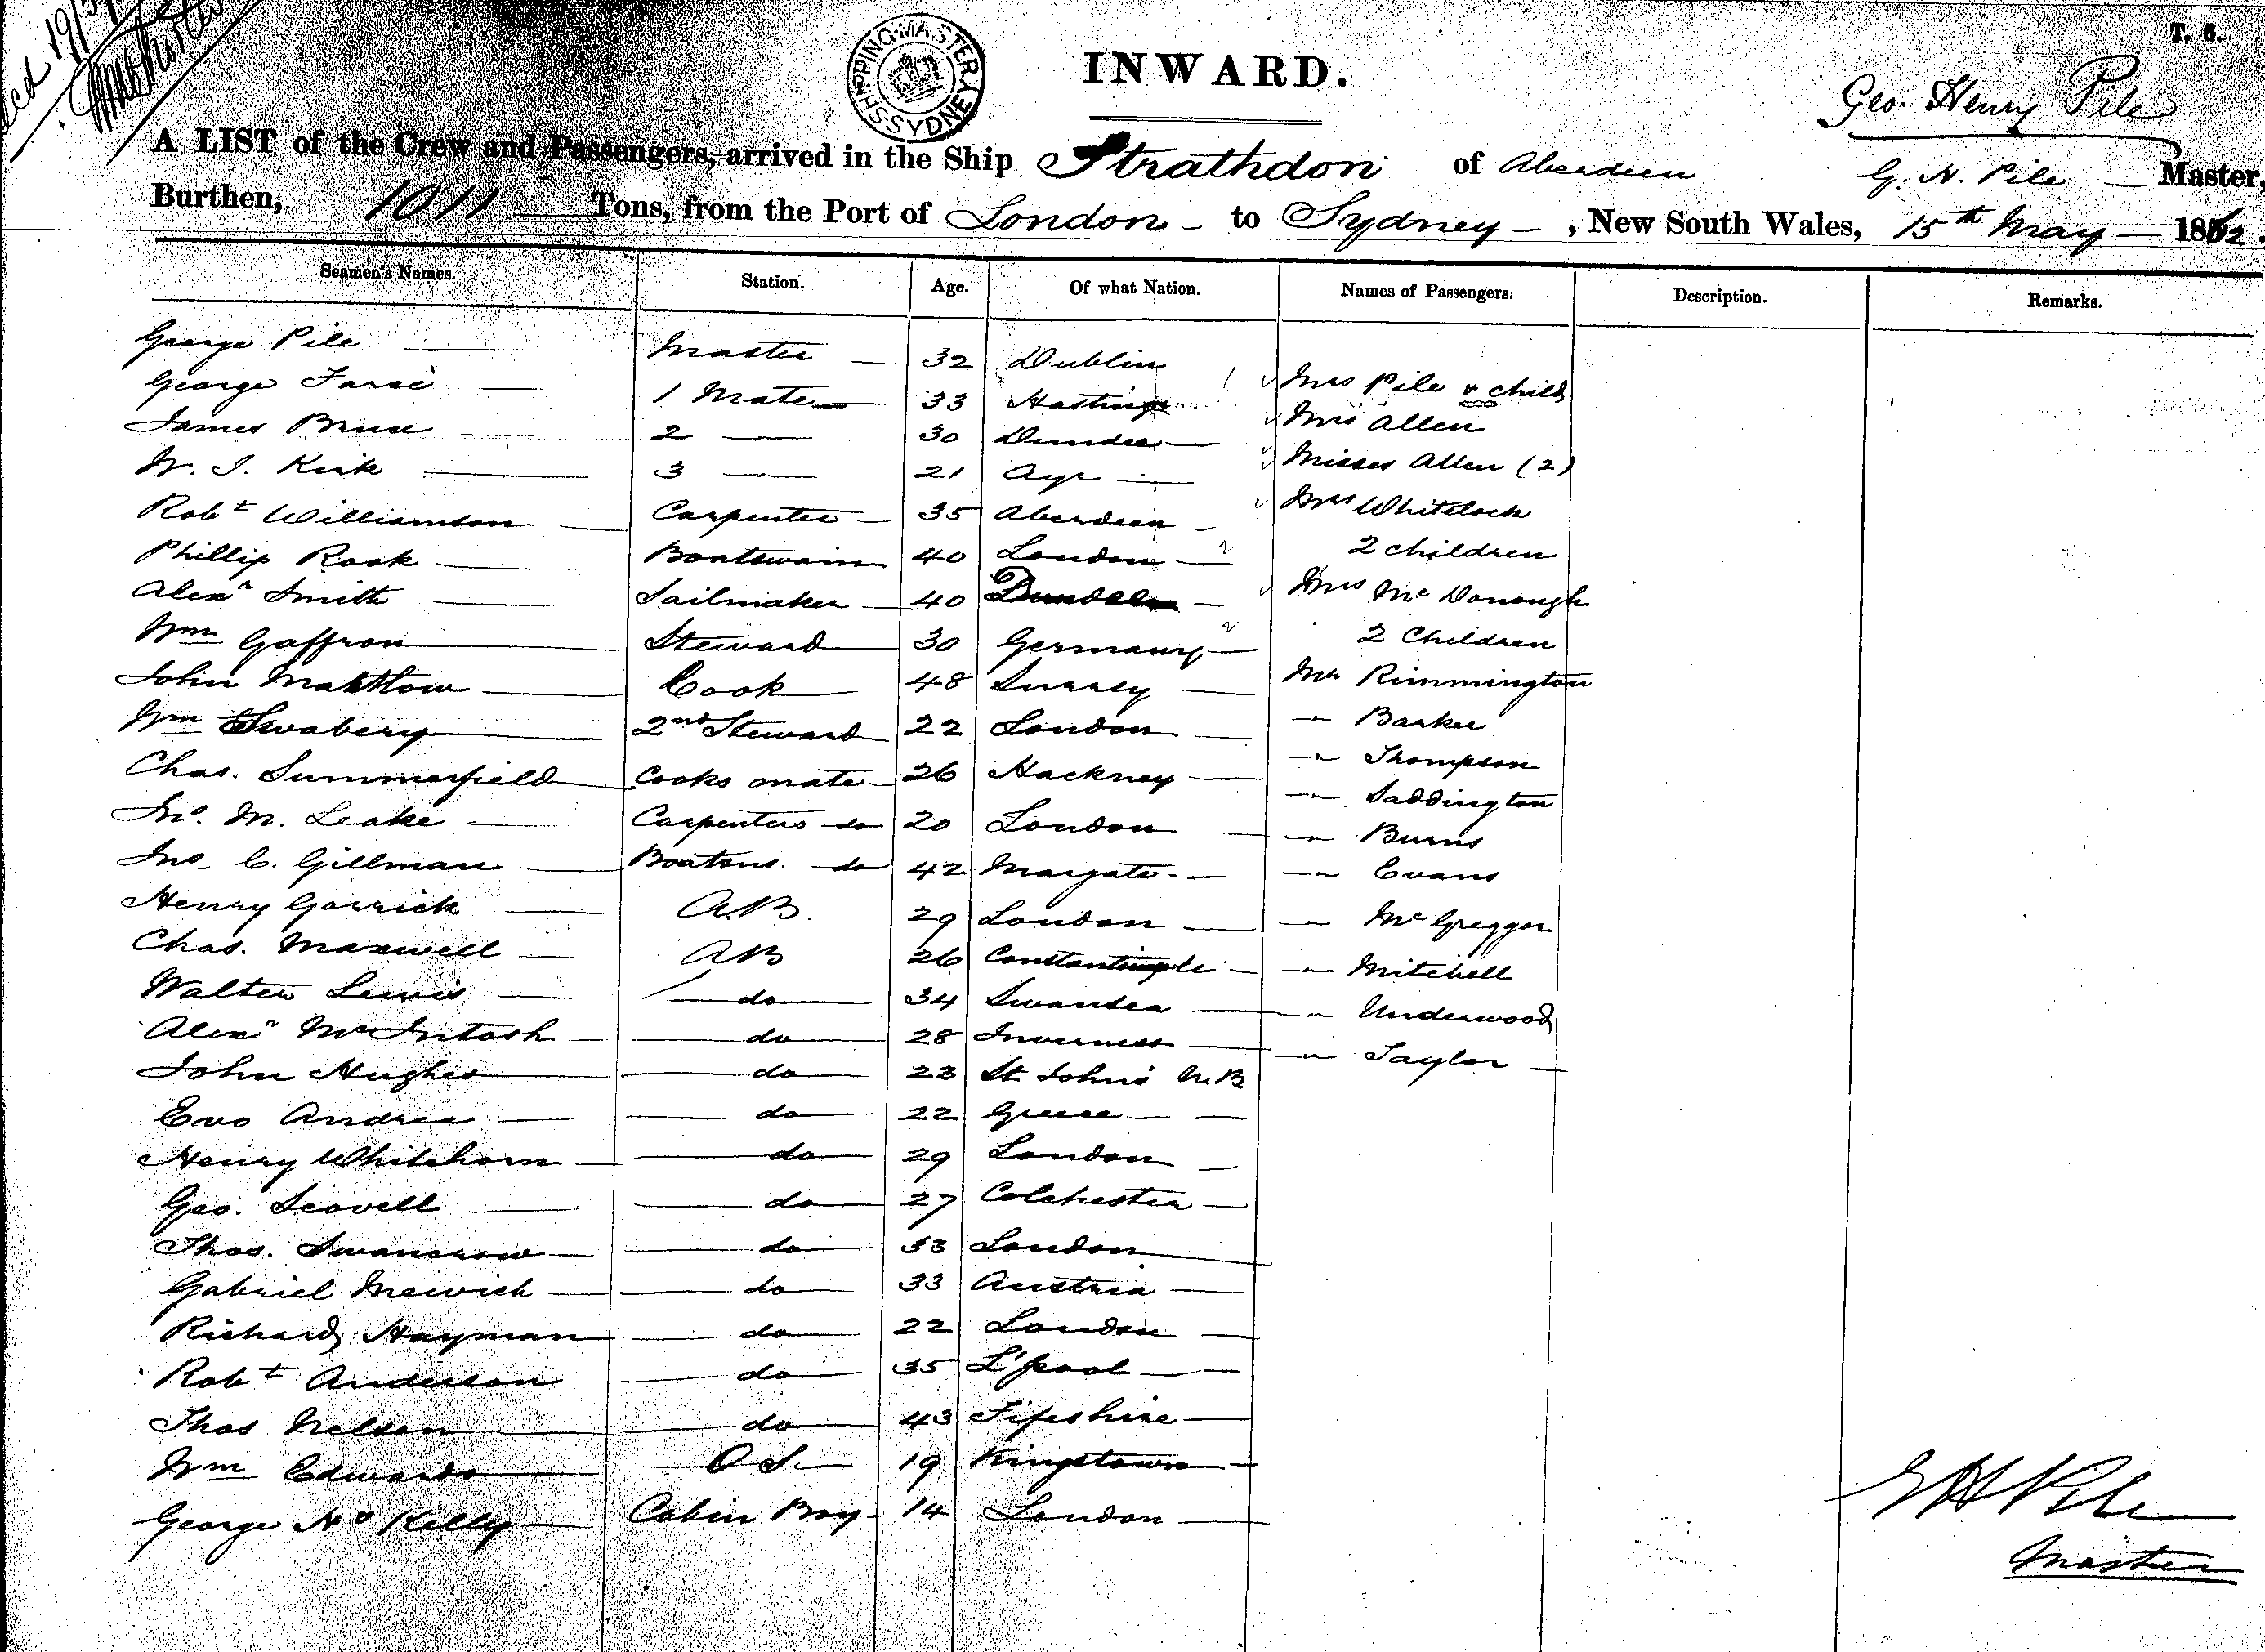 T. 6.
SHIPPING MASTER SYDNEY
INWARD.
Geo. Henry Pile
A LIST of the Crew and Passengers, arrived in the Ship Strathdon of Aberdeen G. H. Pile Master,
Burthen, 1011 Tons, from the Port of London to Sydney, New South Wales, 15th May 1862.
Seamen's Names. Station. Age. Of what Nation. Names of Passengers. Description. Remarks.
George Pile Master 32 Dublin
Mrs Pile & child
George 1 Mate 33 Hastings
Mrs Allen
James Bruce 2 30 Dundee
Misses Allen (2)
W. J. Kirk 3 21 Ayr
Mrs Whitelock
Robt Williamson Carpenter 35 Aberdeen
2 children
Phillip Rook Boatswain 40 London
Mrs McDonough
Alexr Smith Sailmaker 40
2 Children
Wm Gaffron Steward 30 Germany
Mr Rimmington
John Cook 48 Surrey
" Barker
Wm Swabery 2nd Steward 22 London
" Thompson
Chas. Summerfield Cooks mate 26 Hackney
" Saddington
Jno. M. Leake Carpenters do 20 London
" Burns
Jno. C. Gillman Boatsns. do 42 Margate
" Evans
Henry Garrick A.B. 29 London
" McGreggor
Chas. Maxwell AB 26 Constantinople
" Mitchell
Walter Lewis do 34 Swansea
" Underwood
Alexr McIntosh do 28 Inverness
" Taylor
John Hughes do 23 St Johns N.B
Evo Andrea do 22 Greece
Henry Whitehorn do 29 London
Geo. Scovell do 27 Colchester
Thos. do 33 London
Gabriel do 33 Austria
Richard Hayman do 22 London
Robt Anderson do 35 L'pool
Thos Nelson do 43 Fifeshire
Wm Edwards O S 19 Kingstown
George Kelly Cabin Boy 14 London
G H Pile
Master